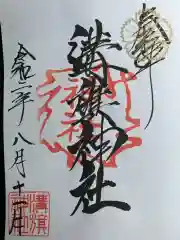 奉拝
溝旗神社
令和二年八月十一日
溝旗